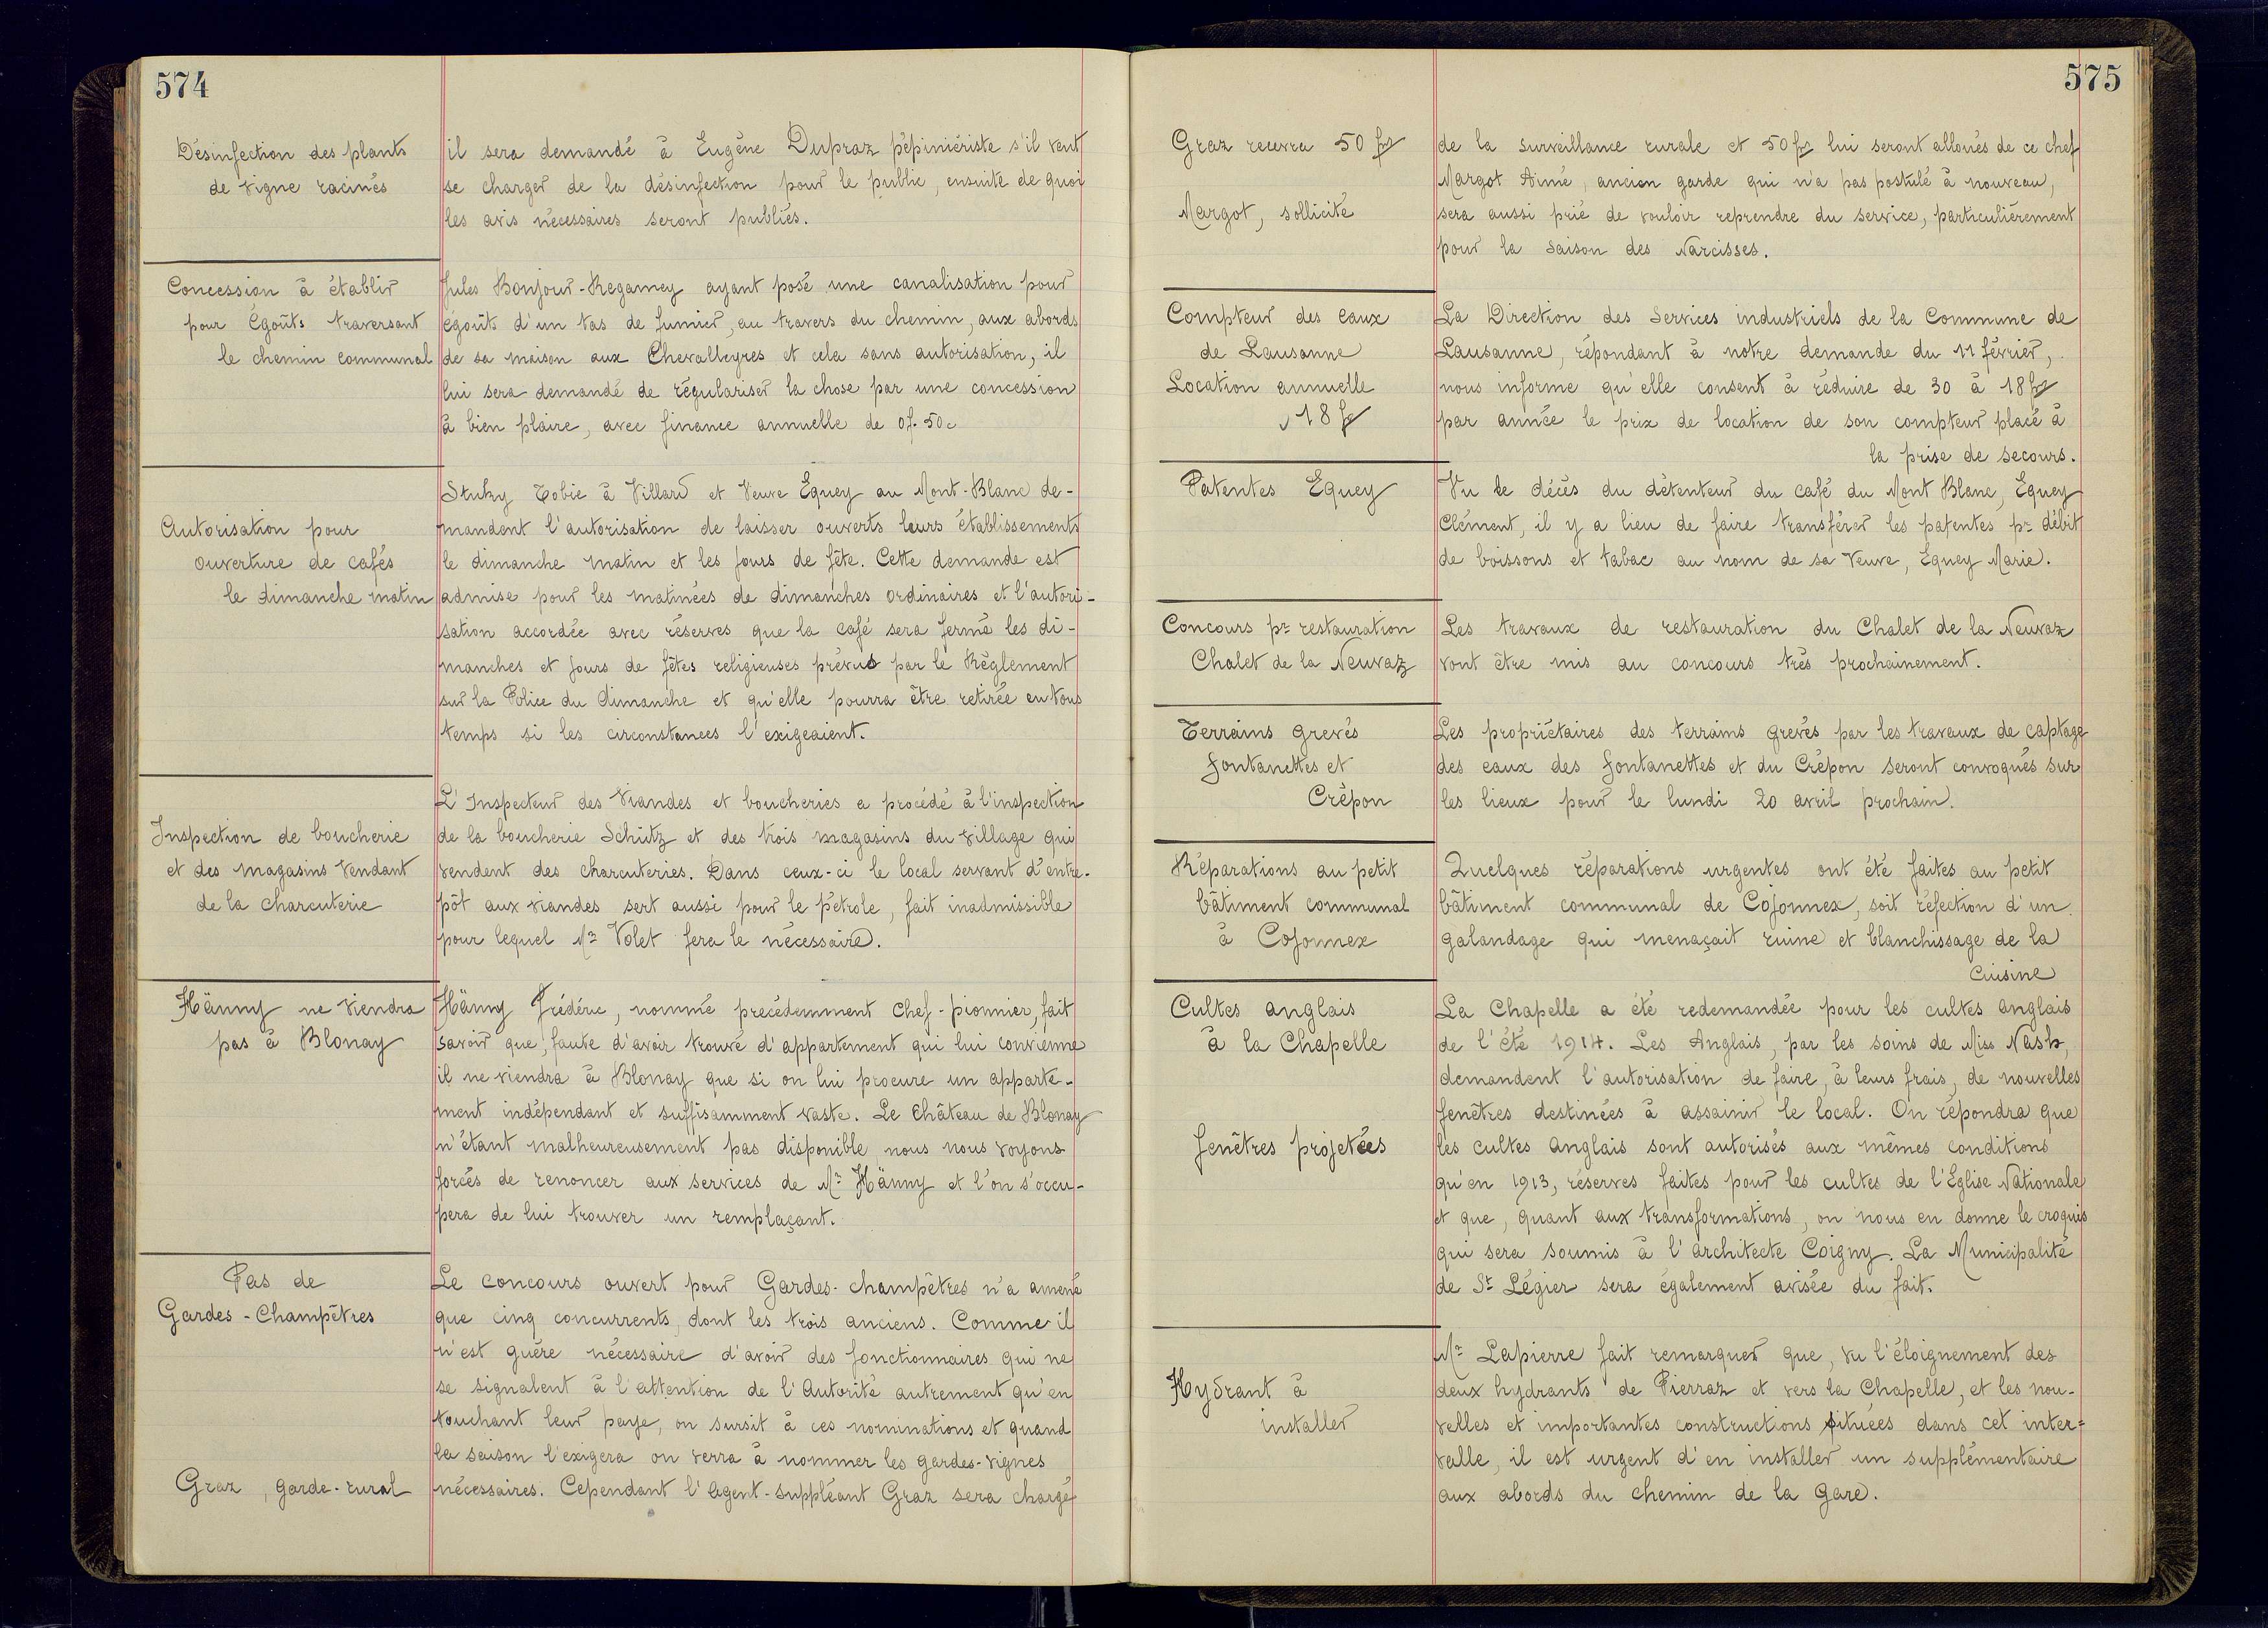 574
Désinfection des plants
de vigne racinés
il sera demandé à Eugène Dupraz pépiniériste s'il veut
se charger de la désinfection pour le public, ensuite de quoi
les avis nécessaires seront publiés.
Concession à établir
pour Égoûts traversant
le chemin communal
Jules Bonjour-Regamey ayant posé une canalisation pour
égoûts d'un tas de fumier, au travers du chemin, aux abords
de sa maison aux Chevalleyres et cela sans autorisation, il
lui sera demandé de régulariser la chose par une concession
à bien plaire, avec finance annuelle de 0f. 50c
Autorisation pour
ouverture de cafés
le dimanche matin
Stuky Tobie à Villard et Veuve Equey au Mont-Blanc de-
mandent l'autorisation de laisser ouverts leurs établissements
le dimanche matin et les jours de fête. Cette demande est
admise pour les matinées de dimanches ordinaires et l'autori-
sation accordée avec réserves que la café sera fermé les di-
manches et jours de fêtes religieuses prévus par le Règlement
sur la Police du Dimanche et qu'elle pourra être retirée en tous
temps si les circonstances l'exigeaient.
Inspection de boucherie
et des magasins vendant
de la charcuterie
L'Inspecteur des Viandes et boucheries a procédé à l'inspection
de la boucherie Schütz et des trois magasins du village qui
vendent des charcuteries. Dans ceux-ci le local servant d'entre-
pôt aux viandes sert aussi pour le pétrole, fait inadmissible
pour lequel Mr Volet fera le nécessaire.
Hänny ne viendra
pas à Blonay
Hänny Frédéric, nommé precédemment Chef-pionnier, fait
savoir que, faute d'avoir trouvé d'appartement qui lui convienne
il ne viendra à Blonay que si on lui procure un apparte-
ment indépendant et suffisamment vaste. Le Château de Blonay
n'étant malheureusement pas disponible nous nous voyons
forcés de renoncer aux services de Mr Hänny et l'on s'occu-
pera de lui trouver un remplaçant.
Pas de
Gardes-Champêtres
Le concours ouvert pour Gardes-champêtres n'a amené
que cinq concurrents, dont les trois anciens. Comme il
n'est guère nécessaire d'avoir des fonctionnaires qui ne
se signalent à l'attention de l'Autorité autrement qu'en
touchant leur paye, on sursit à ces nominations et quand
la saison l'exigera on verra à nommer les gardes-vignes
Graz, garde-rural
nécessaires. Cependant l'Agent-suppléant Graz sera chargé
575
Graz recevra 50 frs
de la surveillance rurale et 50 frs lui seront alloués de ce chef
Margot Aimé, ancien garde qui n'a pas postulé à nouveau,
Margot, sollicité
sera aussi prié de vouloir reprendre du service, particulièrement
pour la saison des Narcisses.
Compteur des eaux
de Lausanne
Location annuelle
18 fr
La Direction des Services industriels de la Commune de
Lausanne, répondant à notre demande du 11 février,
nous informe qu'elle consent à réduire de 30 à 18 frs
par année le prix de location de son compteur placé à
la prise de secours.
Patentes Equey
Vu le décès du détenteur du café du Mont Blanc, Equey
Clément, il y a lieu de faire transférer les patentes pr débit
de boissons et tabac au nom de sa Veuve, Equey Marie.
Concours pr restauration
Chalet de la Neuvaz
Les travaux de restauration du Chalet de la Neuvaz
vont être mis au concours très prochainement.
Terrains grevés
Fontanettes et
Crêpon
Les propriétaires des terrains grevés par les travaux de captage
des eaux des Fontanettes et du Crêpon seront convoqués sur
les lieux pour le lundi 20 avril prochain.
Réparations au petit
bâtiment communal
à Cojonnex
Quelques réparations urgentes ont été faites au petit
bâtiment communal de Cojonnex, soit réfection d'un
galandage qui menaçait ruine et blanchissage de la
cuisine
Cultes anglais
à la Chapelle
La Chapelle a été redemandée pour les cultes anglais
de l'été 1914. Les Anglais, par les soins de Miss Nash,
demandent l'autorisation de faire, à leurs frais, de nouvelles
fenêtres destinées à assainir le local. On répondra que
fenêtres projetées
les cultes anglais sont autorisés aux mêmes conditions
qu'en 1913, réserves faites pour les cultes de l'Église Nationale
et que, quant aux transformations, on nous en donne le croquis
qui sera soumis à l'architecte Coigny. La Municipalité
de St Légier sera également avisée du fait.
Hydrant à
installer
Mr Lapierre fait remarquer que, vu l'éloignement des
deux hydrants de Pierraz et vers la Chapelle, et les nou-
velles et importantes constructions situées dans cet inter-
valle, il est urgent d'en installer un supplémentaire
aux abords du chemin de la Gare.